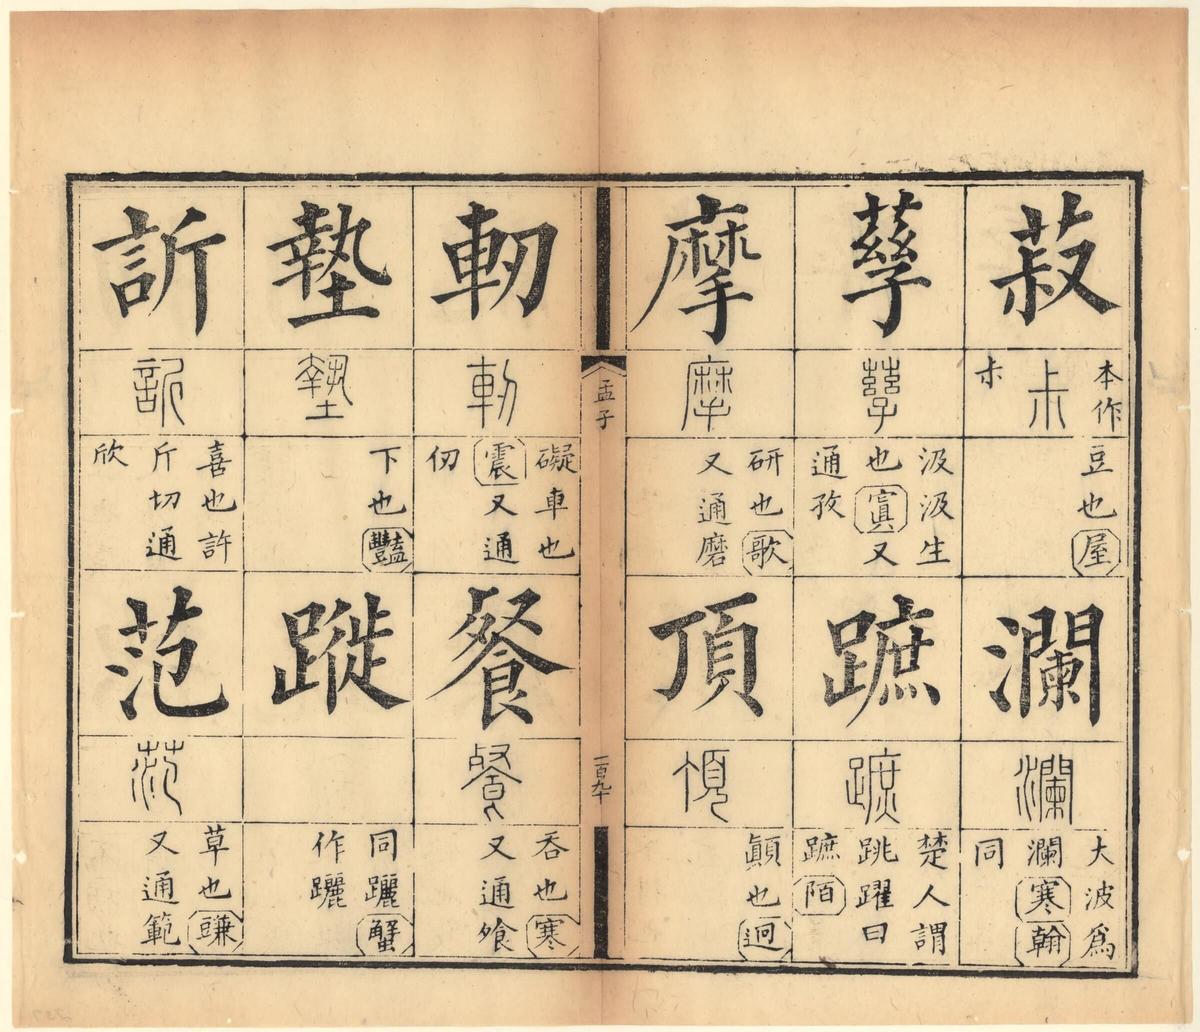 菽
尗
本作
尗
豆也屋
瀾
瀾
大波爲
瀾寒翰
同
孳
孳
汲汲生
也寘又
通孜
蹠
蹠
楚人謂
跳躍曰
蹠陌
摩
摩
研也歌
又通磨
頂
頂
顚也迥
孟子
一百九十
軔
軔
礙車也
震又通
仞
餐
餐
吞也寒
又通飱
墊
墊
下也豔
蹝
同躧蟹
作躧
訢
訢
喜也許
斤切通
欣
范
范
草也豏
又通範